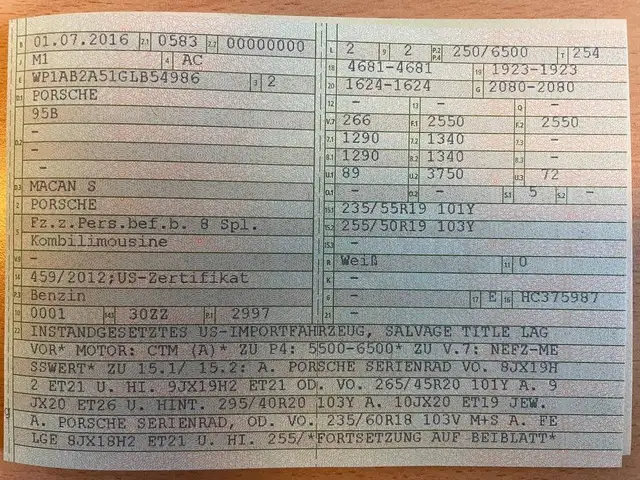 B 01.07.2016 2.1 0583 2.2 00000000
J M1 4 AC
E WP1AB2A51GLB54986 3 2
D.1 PORSCHE
95B
D.2 –
–
–
D.3 MACAN S
2 PORSCHE
5 Fz.z.Pers.bef.b. 8 Spl.
Kombilimousine
V.9 –
14 459/2012;US-Zertifikat
P.3 Benzin
10 0001 14.1 30ZZ P.1 2997
L 2 9 2 P.2 P.4 250/6500 T 254
18 4681-4681 19 1923-1923
20 1624-1624 G 2080-2080
12 – 13 – Q –
V.7 266 F.1 2550 F.2 2550
7.1 1290 7.2 1340 7.3 –
8.1 1290 8.2 1340 8.3 –
U.1 89 U.2 3750 U.3 72
O.1 – O.2 – S.1 5 S.2 –
15.1 235/55R19 101Y
15.2 255/50R19 103Y
15.3 –
R Weiß 11 0
K –
6 – 17 E 16 HC375987
21 –
22 INSTANDGESETZTES US-IMPORTFAHRZEUG, SALVAGE TITLE LAG
VOR* MOTOR: CTM (A)* ZU P4: 5500-6500* ZU V.7: NEFZ-ME
SSWERT* ZU 15.1/ 15.2: A. PORSCHE SERIENRAD VO. 8JX19H
2 ET21 U. HI. 9JX19H2 ET21 OD. VO. 265/45R20 101Y A. 9
JX20 ET26 U. HINT. 295/40R20 103Y A. 10JX20 ET19 JEW.
A. PORSCHE SERIENRAD, OD. VO. 235/60R18 103V M+S A. FE
LGE 8JX18H2 ET21 U. HI. 255/*FORTSETZUNG AUF BEIBLATT*